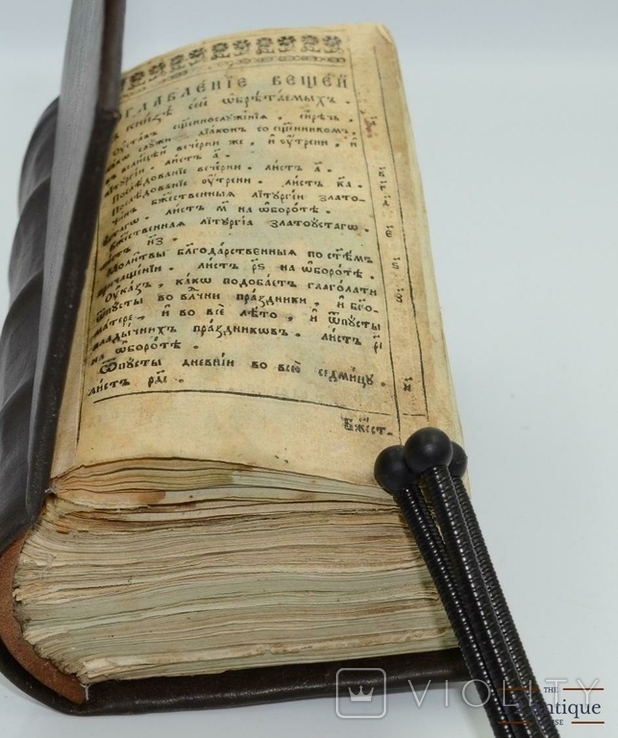 ОГЛАВЛЕНІЕ ВЕЩЕЙ
в̾ книзѣ сей ѡбрѣтаемыхъ .
Оуставъ сщ҃еннослуженїѧ . сирѣчь ,
какѡ служи дїаконъ со сщ҃енникомъ ,
въ велицѣй вечерни же , и оутрени , и
литургїи . листъ а҃ .
Послѣдованїе вечерни . листъ а҃ .
Послѣдованїе оутрени . листъ к҃а .
Чинъ бж҃ественныѧ літургїи злато-
устагѡ . листъ м҃ на ѡборотѣ .
Бж҃ественнаѧ літургїа златоустагѡ .
листъ н҃з .
Молитвы благодарственныѧ по ст҃ѣмъ
причащенїи . листъ р҃ѕ на ѡборотѣ .
Оуказъ , какѡ подобаетъ глаголати
ѿпусты во влⷣчни праздники , и бг҃о-
матере , и во всѐ лѣто , и ѿпусты
владычнихъ праздникѡвъ . листъ р҃і
на ѡборотѣ .
Ѿпусты дневнїи во всю седмицу .
листъ р҃аі .
в҃
г҃
д҃
є҃
ѕ҃
з҃
и҃
Бж҃ест-
VIOLITY
THE
Antique
HOUSE